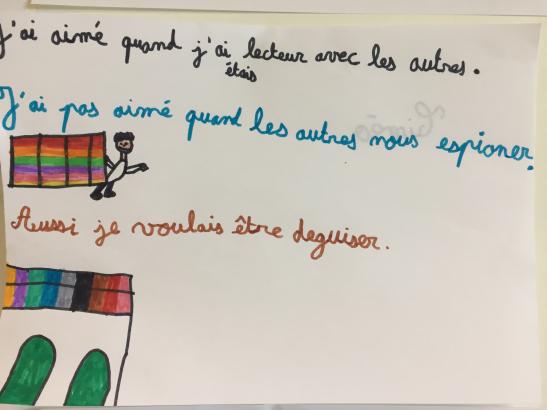 J'ai aimé quand j'ai lecteur avec les autres.
étais
J'ai pas aimé quand les autres nous espioner.
Aussi je voulais être deguiser.